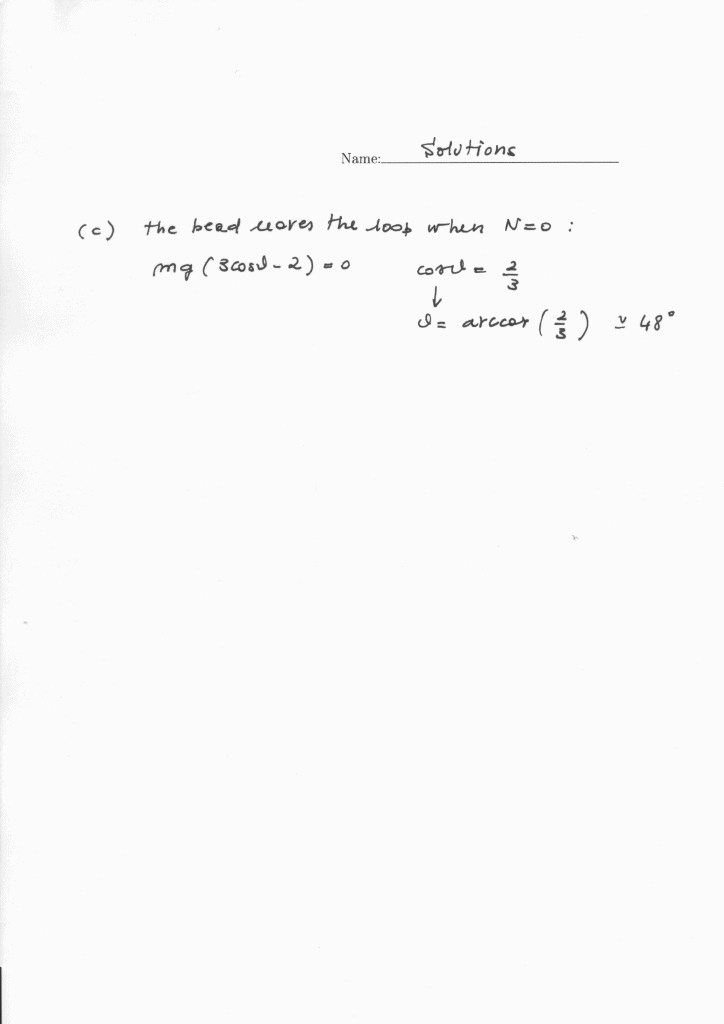 Name: Solutions
(c) the bead leaves the loop when N=0 :
mg (3cosϑ - 2) = 0 cosϑ = 2/3
↓
ϑ = arccos (2/3) ≃ 48°